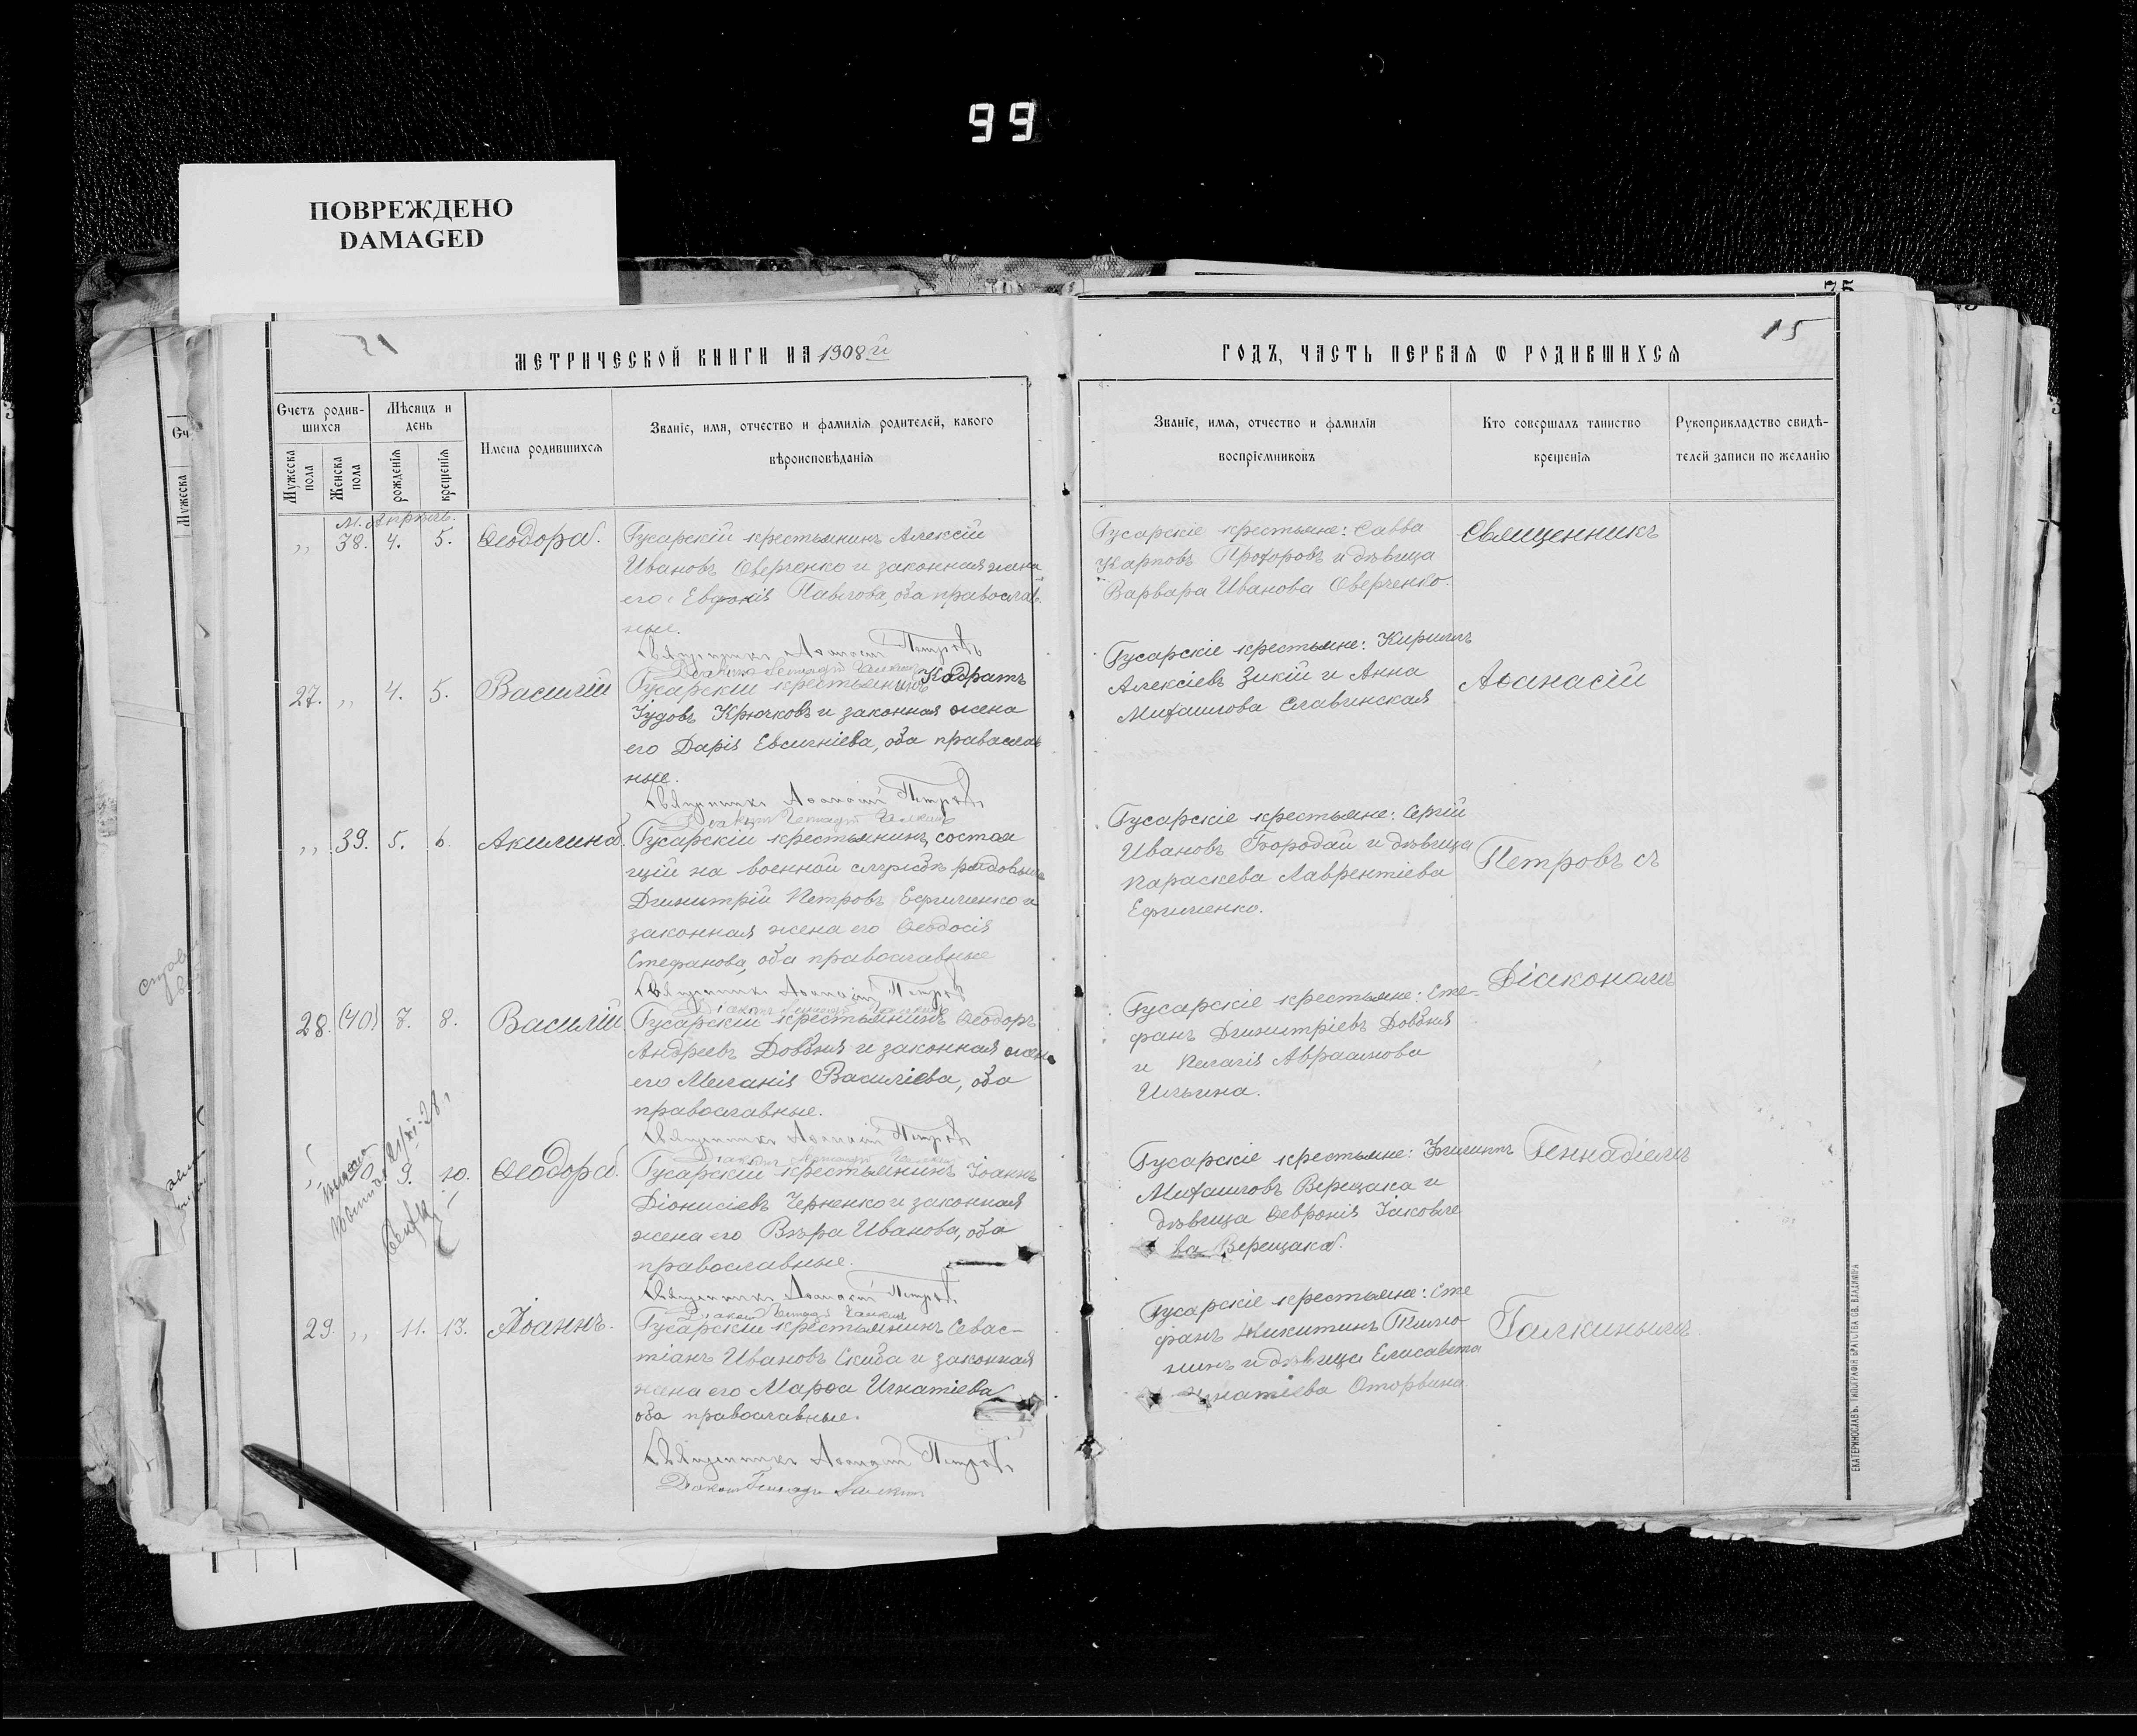 99
ПОВРЕЖДЕНО
DAMAGED
75
15
МЕТРИЧЕСКОЙ КНИГИ НА 1908 й
ГОДЪ, ЧАСТЬ ПЕРВАЯ Ѡ РОДИВШИХСЯ
Счетъ родив-
шихся
Мужеска пола
Женска пола
Мѣсяцъ и
день
рожденія
крещенія
Имена родившихся
Званіе, имя, отчество и фамилія родителей, какого
вѣроисповѣданія
Званіе, имя, отчество и фамилія
воспріемниковъ
Кто совершалъ таинство
крещенія
Рукоприкладство свидѣ-
телей записи по желанію
М. Апрѣль.
„ 38. 4. 5. Ѳеодора.
Гусарскій крестьянинъ Алексій
Ивановъ Оверченко и законная жена
его Евфокія Павлова, оба православ-
ные.
Священникъ Аѳанасій Петровъ
Діаконъ Геннадій Галкинъ
Гусарскіе крестьяне: Савва
Карповъ Прохоровъ и дѣвица
Варвара Иванова Оверченко.
Священникъ
27. „ 4. 5. Василій
Гусарскій крестьянинъ Кодратъ
Іудовъ Крючковъ и законная жена
его Дарія Евсигніева, оба православ
ные.
Священникъ Аѳанасій Петровъ
Діаконъ Геннадій Галкинъ
Гусарскіе крестьяне: Кириллъ
Алексіевъ Зикій и Анна
Михаилова Славинская
Аѳанасій
„ 39. 5. 6. Акилина.
Гусарскій крестьянинъ, состоя
щій на военной службѣ рядовымъ
Димитрій Петровъ Ефименко и
законная жена его Ѳеодосія
Стефанова, оба православные
Священникъ Аѳанасій Петровъ
Діаконъ Геннадій Галкинъ
Гусарскіе крестьяне: Сергій
Ивановъ Бородай и дѣвица
Параскева Лаврентіева
Ефименко.
Петровъ съ
28. (40) 7. 8. Василій
Гусарскій крестьянинъ Ѳеодоръ
Андреевъ Довбня и законная жена
его Меланія Василіева, оба
православные.
Священникъ Аѳанасій Петровъ
Діаконъ Геннадій Галкинъ
Гусарскіе крестьяне: Сте-
фанъ Димитріевъ Довбня
и Пелагія Авраамова
Ильина.
Діакономъ
„ 9. 10. Ѳеодора.
Гусарскій крестьянинъ Іоаннъ
Діонисіевъ Черненко и законная
жена его Вѣра Иванова, оба
православные.
Священникъ Аѳанасій Петровъ
Діаконъ Геннадій Галкинъ
Гусарскіе крестьяне:
Михаиловъ Верещака и
дѣвица Ѳевронія Іаковле
ва Верещака.
Геннадіемъ
29. „ 11. 13. Іоаннъ.
Гусарскій крестьянинъ Севас-
тіанъ Ивановъ Скиба и законная
жена его Марѳа Игнатіева
оба православные.
Священникъ Аѳанасій Петровъ
Діаконъ Геннадій Галкинъ
Гусарскіе крестьяне: Сте
фанъ Никитинъ
и дѣвица Елисавета
Игнатіева Оторвина
Галкинымъ.
ЕКАТЕРИНОСЛАВЪ. ТИПОГРАФІЯ БРАТСТВА СВ. ВЛАДИМІРА